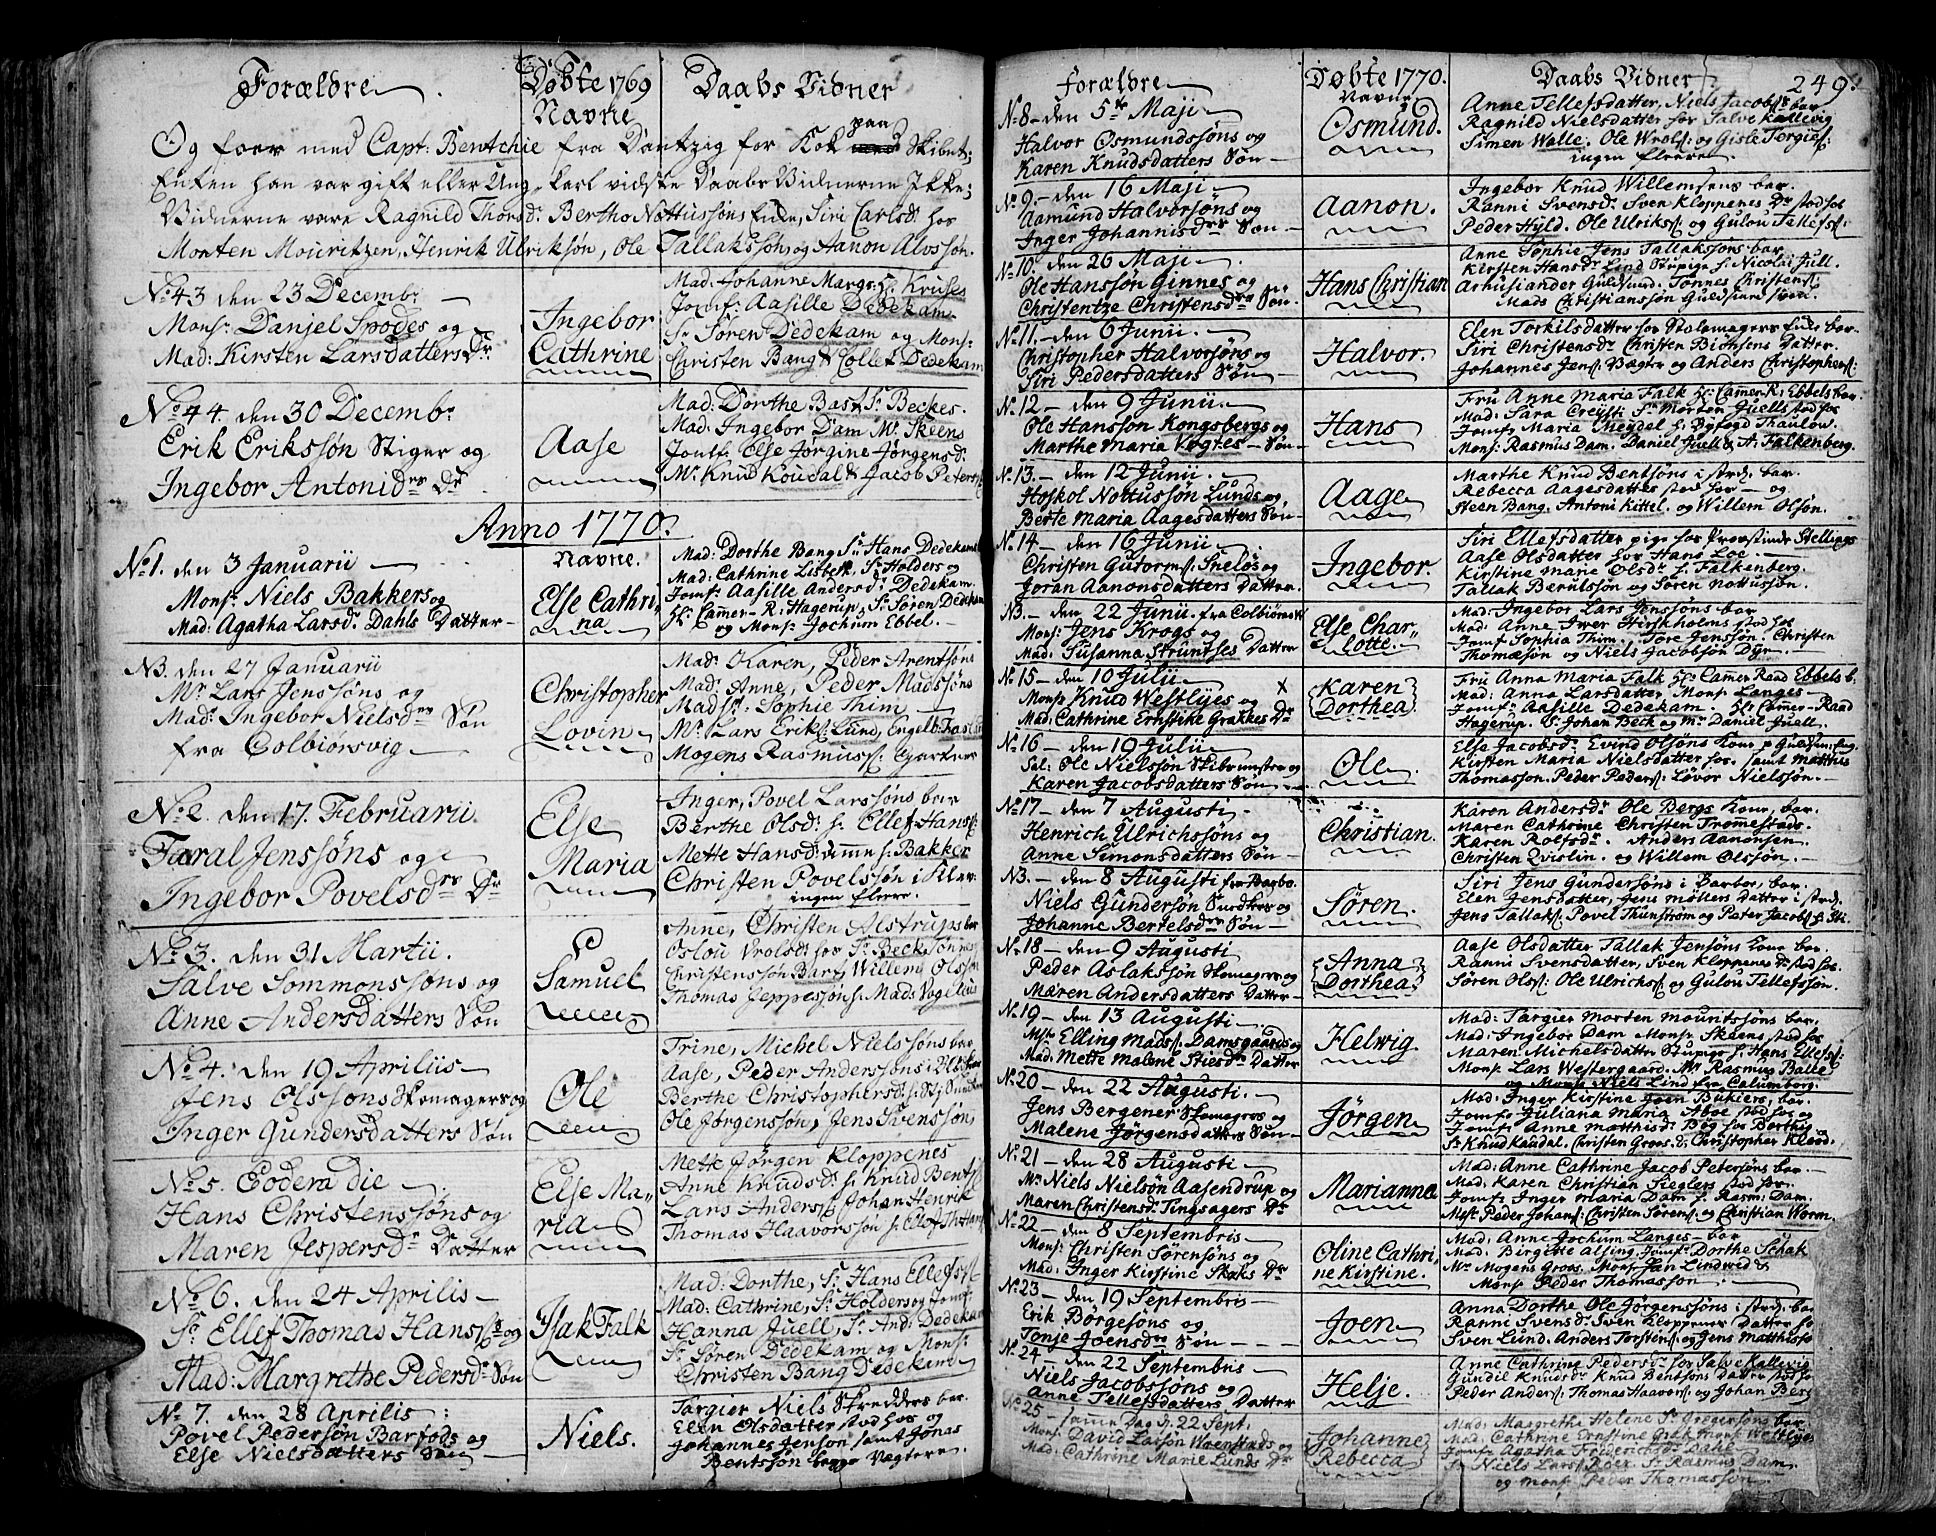 Forældre
Døbte 1769
Navne
Daabs Vidner
Og foer med Capt: Bentchie fra Dantzig for Kok paa Skibet;
Enten han var gift eller Ung-karl vidste Daabs Vidnerne Ikke;
Vidnerne vare Ragnild Thorsd: Bertho Nottussøns Enke, Siri Carlsd: hos
Morten Mouritzen, Henrik Ulriksøn, Ole Tallaksson og Aanon Alvsson.
No 43 den 23 Decembr
Mons: Danjel Spodes og
Mad: Kirsten Larsdatters Dr
Ingebor
Cathrine
Mad: Johanne Margr: Sr Kruses
Jomf: Aasille Dedekam
Sr Søren Dedekam og Mons:
Christen Bang & Collet Dedekam
No 44. den 30 Decembr
Erik Eriksøn Stiger og
Ingebor Antonidrs Dr
Aase
Mad: Dorthe Bast Sr Beckes.
Mad: Ingebor Dam Mr Skeens
Jomf: Else Jørgine Jørgensdr
Mr Knud Koudal & Jacob Peters
Anno 1770.
No 1. den 3 Januarii
Mons: Niels Bakkers og
Mad: Agatha Larsdr Dahls Datter
Navne.
Else Cathri-
na
Mad: Dorthe Bang Sr Hans Dedekams
Mad: Cathrine Lisbeth, Sr Holders og
Jomf: Aasille Andersdr Dedekam
Hr Cammer-R: Hagerup, Sr Søren Dedekam
og Mons: Jochum Ebbel.
N3. den 27 Januarii
Mr Lars Jenssøns og
Mad: Ingebor Nielsdrs Søn
fra Colbiørsvig
Christopher
Lovin
Mad: Karen, Peder Arentsøns
Mad: Anne, Peder Madssøns
Mads: Sophie Thim
Mr Lars Eriks: Lund, Engelb:
Mogens Rasmuss: Gartner
No 2. den 17. Februarii
Taral Jenssøns og
Ingebor Povelsdrs Dr
Else
Maria
Inger, Povel Larssøns bar
Berthe Olsd: h: Ellef Hans
Mette Hansd: amme h: Bakker
Christen Povelssøn i Klev
ingen fleere
No 3. den 31 Martii.
Salve Sommonssøns og
Anne Andersdatters Søn
Samuel
Anne, Christen Alstrups bar
Oslou Vroldsdr hos Sr Beck Tønnes
Christenssøn Barf, Willem Olssøn
Thomas Jeppessøn h: Mads Vogelius
No 4. den 19 Apriliis
Jens Olssons Skomagers og
Inger Gundersdatters Søn
Ole
Trine, Michel Nielssøns bar
Aase, Peder Anderssøns i
Berthe Christophersd:
Ole Jørgenssøn, Jens Svenssøn
No 5. Eodem die
Hans Christenssøns og
Maren Jespersdr Datter
Else Ma-
ria
Mette Jørgen Kloppenes
Anne Knudsdr h: Knud Bents
Lars Anders: Johan Henrik
Thomas Haavorssøn h:
No 6. den 24 Aprilis
Sr Ellef Thomas Hans: og
Mad: Margrethe Pedersdr Søn
Isak Falk
Mad: Dorthe, Sr Hans Ellefs:
Mad: Cathrine, Sr Holders og Jomf:
Hanna Juell, Sr And: Dedekam
Sr Søren Dedekam og Mons:
Christen Bang Dedekam
No 7. den 28 Aprilis
Povel Pedersøn Barfods og
Else Nielsdatters Søn
Niels.
Targier Niels Skredders bar.
Elen Olsdatter stod hos og
Johannes Jenson, samt Jonas
Bentssøn begge Vægtere
Forældre
Døbte 1770.
Navne
Daabs Vidner
249.
No 8 den 5te Maji
Halvor Osmundssøns og
Karen Knudsdatters Søn
Osmund.
Anne Tellefsdatter, Niels Jacobs: bar
Ragnild Nielsdatter for Salve Kallevig
Simen Walle. Ole Wrols: og Gisle Torgies:
ingen fleere
No 9. den 16 Maji
Aamund Halvorsøns og
Inger Johannisdrs Søn
Aanon.
Ingebor Knud Willemsens bar.
Ranni Svensdr Sven Kloppenes Dr stod hos
Peder Hyld. Ole Ulriks: og Gulou Tellefs:
No 10. den 26 Maji
Ole Hanssøn Ginnes og
Christentze Christensdrs Søn.
Hans Christian
Anne Sophie Jens Tallakssøns bar.
Kirsten Hansdr Lind Stupige h. Nicolai Juell.
Arhusiander Guldsmed. Tønnes Christens:
Mads Christianssøn Guldsmed svend.
No 11. den 6 Junii
Christopher Halvorsøns og
Siri Pedersdatters Søn
Halvor.
Elen Torkilsdatter for Stolemagers Enke bar.
Siri Christensdr Christen Bichsens Datter.
Johannes Jens: Vægter og Anders Christophers:
No 12 den 9 Junii
Ole Hansson Kongsbergs og
Marthe Maria Vogtes Søn
Hans
Fru Anne Maria Falk Hr Camer R: Ebbels bar.
Mad: Sara Creysti Sr Morten Juells stod hos
Jomf: Maria Meydel h: Byfogd Thaulow.
Mons: Rasmus Dam. Daniel Juell & A. Falkenberg.
No 13. den 12 Junii
Hoskol Nottussøn Lunds og
Berte Maria Aagesdatters Søn
Aage
Marthe Knud Bentsøns i strd. bar.
Rebecca Aagesdatter stod hos og
Steen Bang. Antoni Kittel. og Willem Olsøn.
No 14 den 16 Junii
Christen Gutorms: Sneløs og
Joran Aanonsdatters Datter
Ingebor.
Siri Ellefsdatter pige for Provstinde Stellings
Aase Olsdatter for Hans Loe
Kirstine Marie Olsdr h: Falkenberg.
Tallak Berulssøn og Søren Nottussøn.
N3. den 22 Junii fra Colbiørnsv:
Mons: Jens Krogs og
Mad: Susanna Struntses Datter
Else Char-
lotte.
Mad: Ingebor Lars Jenssøns bar
Mad: Anne Iver Hirskholms stod hos
Jomf: Sophia Thim. Tore Jenssøn. Christen
Thomæsøn og Niels Jacobsøn Dyr
No 15 den 10 Julii
Mons: Knud Westlyes og X
Mad: Cathrine Ernstike Grakkes Dr
Karen
Dorthea
Fru Anna Maria Falk Hr Camer Raad Ebbels b.
Mad: Anna Larsdatter Mons: Langes
Jomf: Aasille Dedekam. Hr Camer-Raad
Hagerup. Sr Johan Beck og Mr Daniel Juell.
No 16 den 19 Julii
Sal: Ole Nielssøn Skibsmster og
Karen Jacobsdatters Søn
Ole
Else Jacobsdr Evind Olsøns Kone
Kirsten Maria Nielsdatter hos. samt Matthis
Thomasson. Peder Peders: Løvor Nielssøn.
No 17 den 7 Augusti
Henrich Ulrichssøns og
Anne Simonsdatters Søn
Christian.
Karen Andersdr Ole Bergs Kone, bar.
Maren Cathrine Christen Tromestads.
Karen Rolfsdr. Anders Aanonsen.
Christen Qvislin. og Willem Olssøn.
N3. den 8 Augusti fra Bagbo.
Niels Gunderson Snedkers og
Johanne Bertelsdrs Søn
Søren.
Siri Jens Gundersøns i Barboe, bar.
Elen Jensdatter, Jens Møllers Datter i strd.
Jens Tallaks: Povel Thunstrøm og Peter Jacobs:
No 18 den 9 Augusti
Peder Aslakssøn Skomagers og
Maren Andersdatters Datter
Anna
Dorthea
Aase Olsdatter Tallak Jensøns Kone bar.
Ranni Svensdatter, Sven Kloppenes Dr stod hos
Søren Ols: Ole Ulrichs: og Gulou Tellefssøn.
No 19 den 13 Augusti
Mr Elling Mads: Damsgaards og
Mad: Mette Malene Stiesdrs Datter
Helwig.
Mad: Targier Morten Mouritssøns bar,
Mad: Ingebor Dam Mons: Skeens stod hos
Maren Michelsdatter Stupige h. Hans Ellefs:
Mons: Lars Westergaard. Mr Rasmus Balle
og Mons: Niels Lind fra Calumborg.
No 20 den 22 Augusti
Jens Bergener Skomagers og
Malene Jørgensdatters Søn
Jørgen
Mad: Inger Kirstine Joen Bukiers, bar.
Jomf: Juliana Maria Aboe stod hos og
Jomf: Anne Matthisdr Bøg for Borthig
Sr Knud Kaudal. Christen Groos & Christopher Klood.
No 21 den 28 Augusti
Mr Niels Nielsøn Aasendrup og
Maren Christensdr Tingsagers Dr
Marianne
Mad: Anne Cathrine Jacob Petersøns bar.
Mad: Karen Christian Sieglers stod hos.
Jomf: Inger Maria Dam h: Rasm. Dam.
Mest: Peder Johans: Christen Sørens: og Christian Worm.
No 22. den 8 Septembris
Mons: Christen Sørensøns og
Mad: Inger Kirstine Skaks Dr
Oline Cathri-
ne Kirstine.
Mad: Anne Jochum Langes bar
Mad: Birgitte Alsing. Jomf: Dorthe Schak
Mr Mogens Groos. Mons: Jan Lindwid &
Mons: Peder Thomasson
No 23 den 19 Septembris
Erik Børgesøns og
Tonje Joensdrs Søn
Joen
Anna Dorthe Ole Jørgenssøns i strd. bar
Ranni Svensdr Sven Kloppenes Datter
Sven Lund. Anders Torstens: og Jens Matthisso
No 24 den 22 Septembris
Niels Jacobssøns og
Anne Tellefsdatters Datter
Helje.
Anne Cathrine Pedersdr for Salve Kallevig
Gundil Knudsdr Knud Bentsøns Datter stod
Peder Anders: Thomas Haavors: og Johan Berg
No 25 samme Dag D. 22 Sept.
Mons: David Larsøn Waenstads og
Mad: Cathrine Marie Lunds Dr
Johanne
Rebecca
Mad: Margrethe Helene Sr Gregersøns bar.
Mad: Cathrine Ernstine Grak Mons: Westlyes
Jomf: Agatha Friderichsdr Dahl
Sr Niels Lars: Boer Sr Rasmus Dam
og Mons: Peder Thomassøn